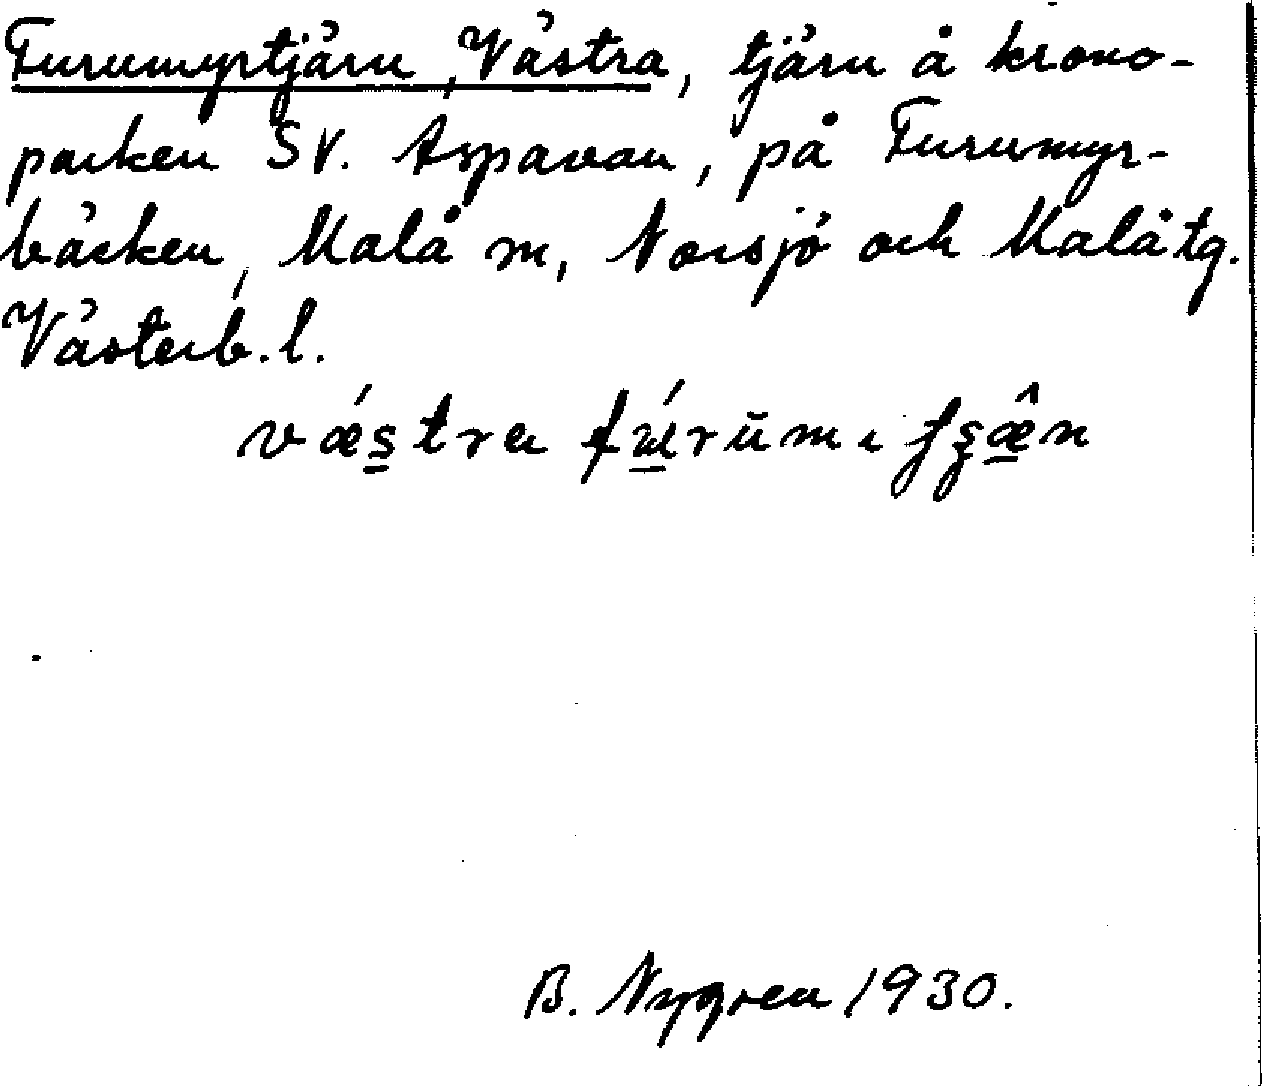 Furumyrtjärn, Västra, tjärn å krono-
parken SV. Aspavan, på Furumyr-
bäcken, Malå sn, Norsjö och Malå tg.
Västerb. l.
B. Nygren 1930.